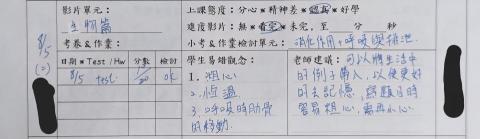 影片單元：
生物篇
上課態度：分心*精神差*認真*好學
進度影片：無*看完*未完，至 分 秒
考卷&作業：
小考&作業檢討單元：消化作用+呼吸與排泄
8/5
(二)
日期*Test/Hw 分數 檢討
8/5 test. ok
學生易錯觀念：
1. 粗心
2. 恆溫
3. 呼吸時肋骨
的移動.
老師建議：可以將生活中
的例子帶入，以便更好
的去記憶，寫題目時
容易粗心，需再小心